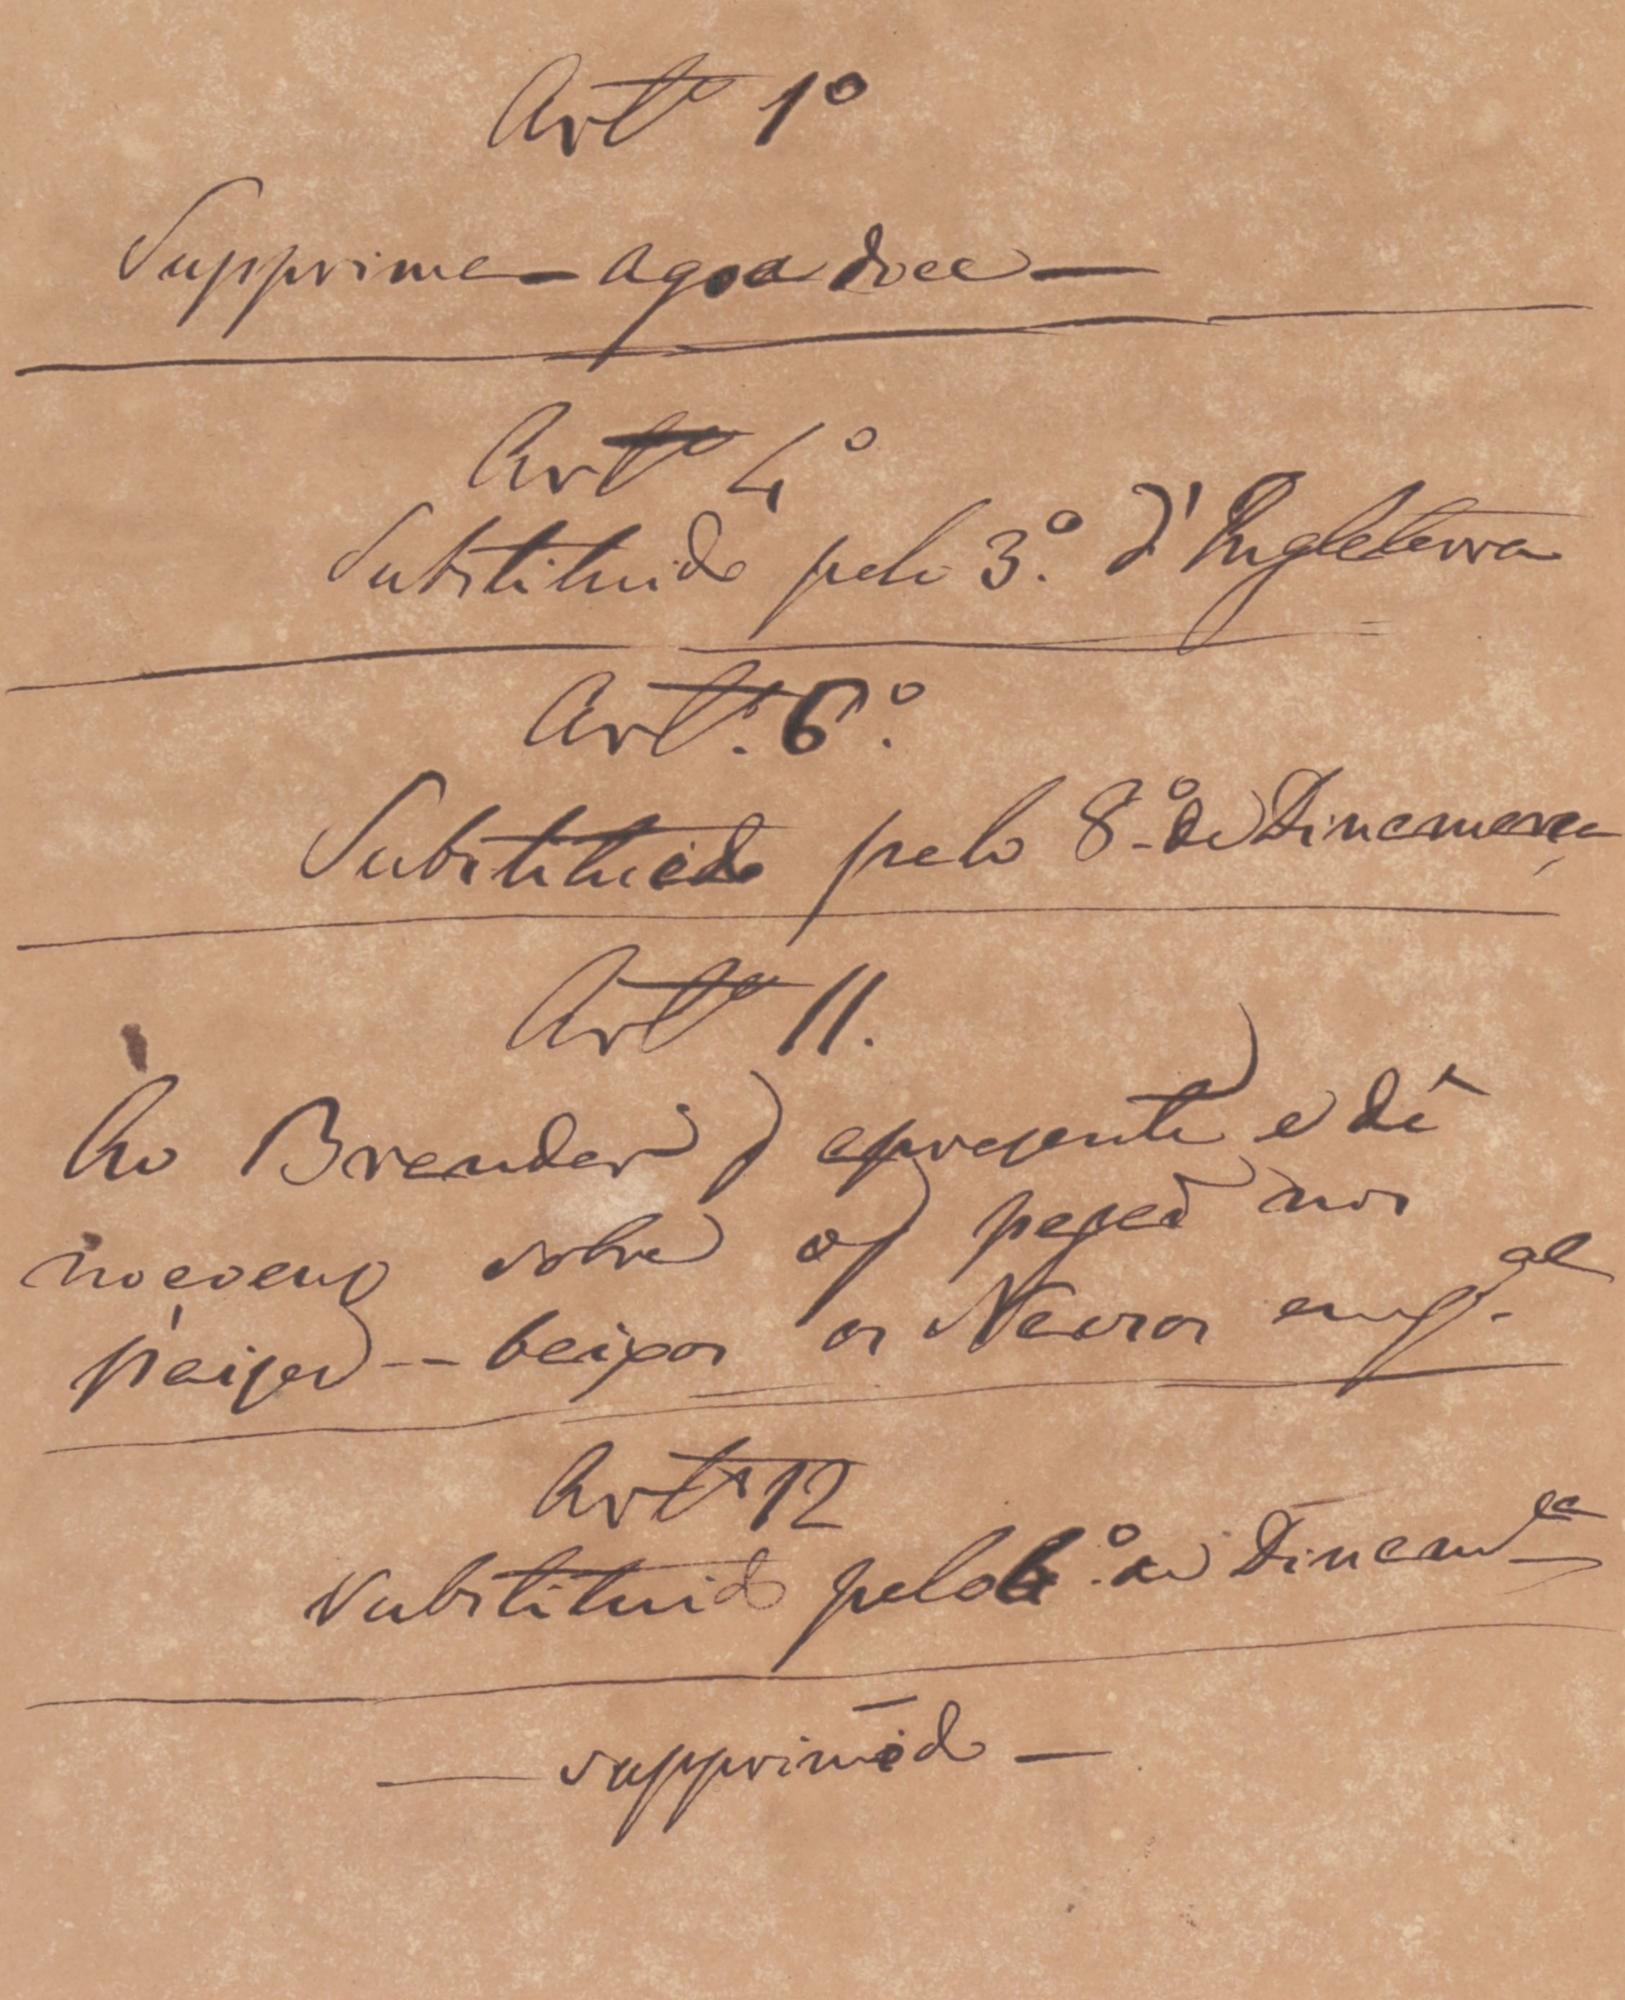 Artº 1º
Supprime — agoa doce —
Artº 4º
Substituido pelo 3º. d'Inglaterra
Artº. 6º.
Substituido pelo 8º. de Dinamarca
Artº 11.
Ao Brander apresente e dê
sobre os nos
Paizes — baixos os em g.al
Artº 12
substituido pelo 6º. de Dinamca
— supprimido —